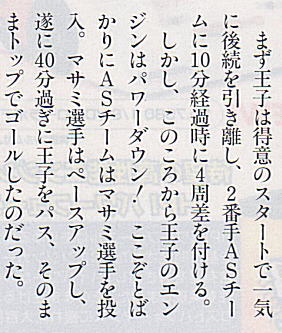 まず王子は得意のスタートで一気
に後続を引き離し、2番手ASチー
ムに10分経過時に4周差を付ける。
しかし、このころから王子のエン
ジンはパワーダウン！　ここぞとば
かりにASチームはマサミ選手を投
入。マサミ選手はペースアップし、
遂に40分過ぎに王子をパス、そのま
まトップでゴルしたのだった。